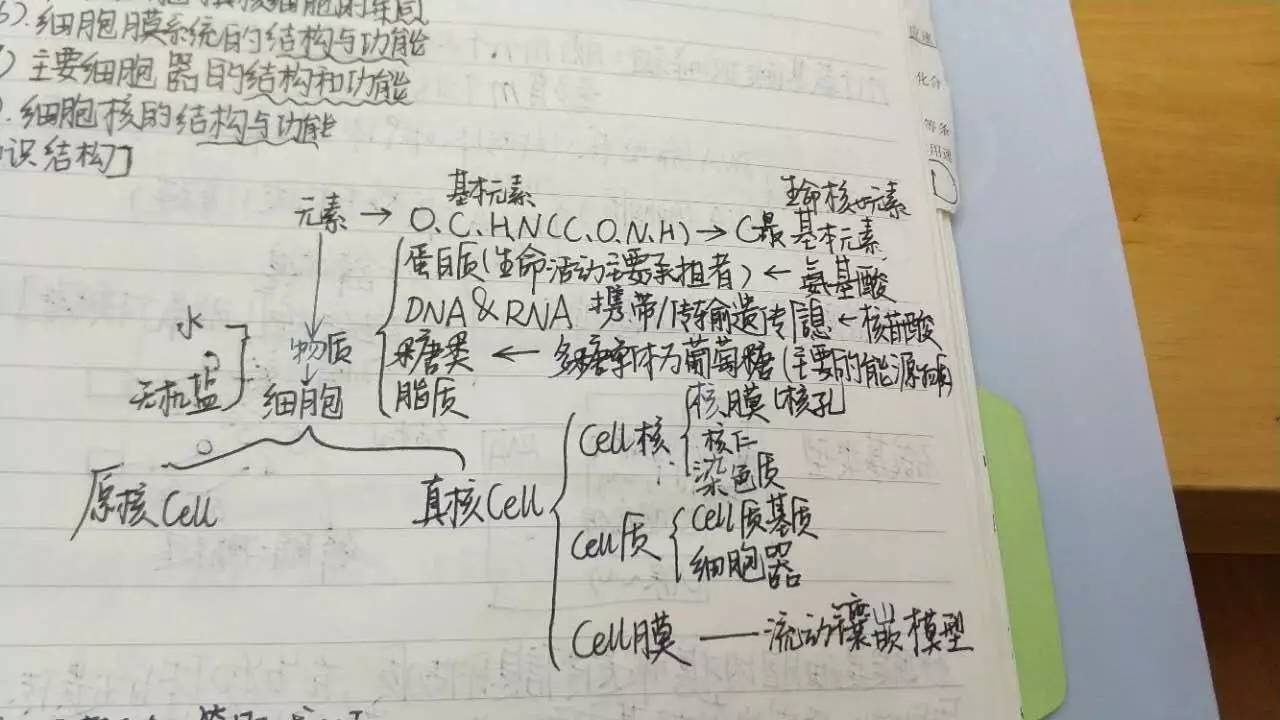 细胞膜系统的结构与功能
主要细胞器的结构和功能
细胞核的结构与功能
识结构]
元素 → 基本元素 O.C.H.N(C.O.N.H) → 生命核心元素 C最基本元素
蛋白质(生命活动主要承担者) ← 氨基酸
DNA & RNA 携带/传输遗传信息 ← 核苷酸
水
无机盐
物质
糖类 ← 多糖单体为葡萄糖(主要的能源物质)
脂质
细胞
原核Cell
真核Cell
Cell核
核膜 核孔
核仁
染色质
Cell质
Cell质基质
细胞器
Cell膜 —— 流动镶嵌模型
化合
等条
用途